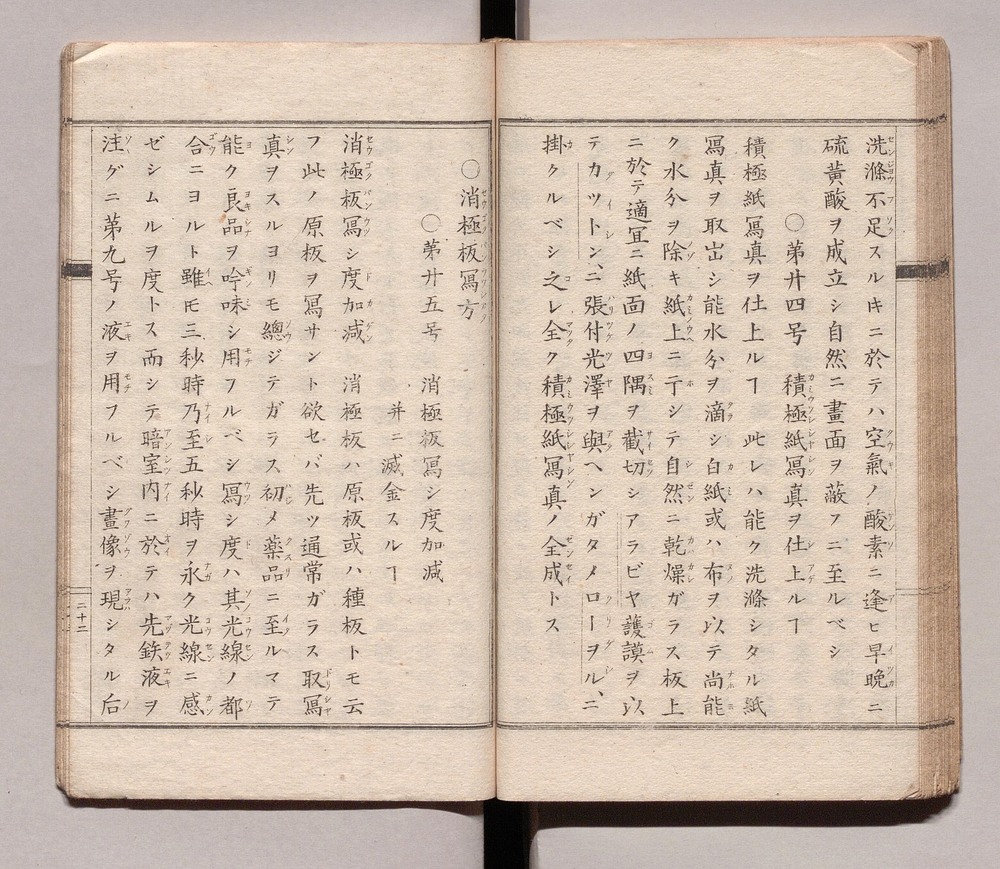 洗滌不足スルキニ於テハ空氣ノ酸素ニ逢ヒ早晩ニ
硫黄酸ヲ成立シ自然ニ畫面ヲ蔽フニ至ルベシ
〇第廿四号　積極紙冩真ヲ仕上ルヿ
積極紙冩真ヲ仕上ルヿ　此レハ能ク洗滌シタル紙
冩真ヲ取出シ能水分ヲ滴シ白紙或ハ布ヲ以テ尚能
ク水分ヲ除キ紙上ニ干シテ自然ニ乾燥ガラス板上
ニ於テ適冝ニ紙面ノ四隅ヲ截切シアラビヤ護謨ヲ以
テカツトン、ニ張付光澤ヲ與ヘンガタメローヲル、ニ
掛クルベシ之レ全ク積極紙冩真ノ全成トス
〇消極板冩方
〇第廿五号　消極板冩シ度加減
并ニ滅金スルヿ
消極板冩シ度加減　消極板ハ原板或ハ種板トモ云
フ此ノ原板ヲ冩サント欲セバ先ツ通常ガラス取冩
真ヲスルヨリモ總ジテガラス初メ薬品ニ至ルマテ
能ク良品ヲ吟味シ用フルベシ冩シ度ハ其光線ノ都
合ニヨルト雖𪜈三秒時乃至五秒時ヲ永ク光線ニ感
ゼシムルヲ度トス而シテ暗室内ニ於テハ先鉄液ヲ
注グニ第九号ノ液ヲ用フルベシ畫像ヲ現シタル后
二十二